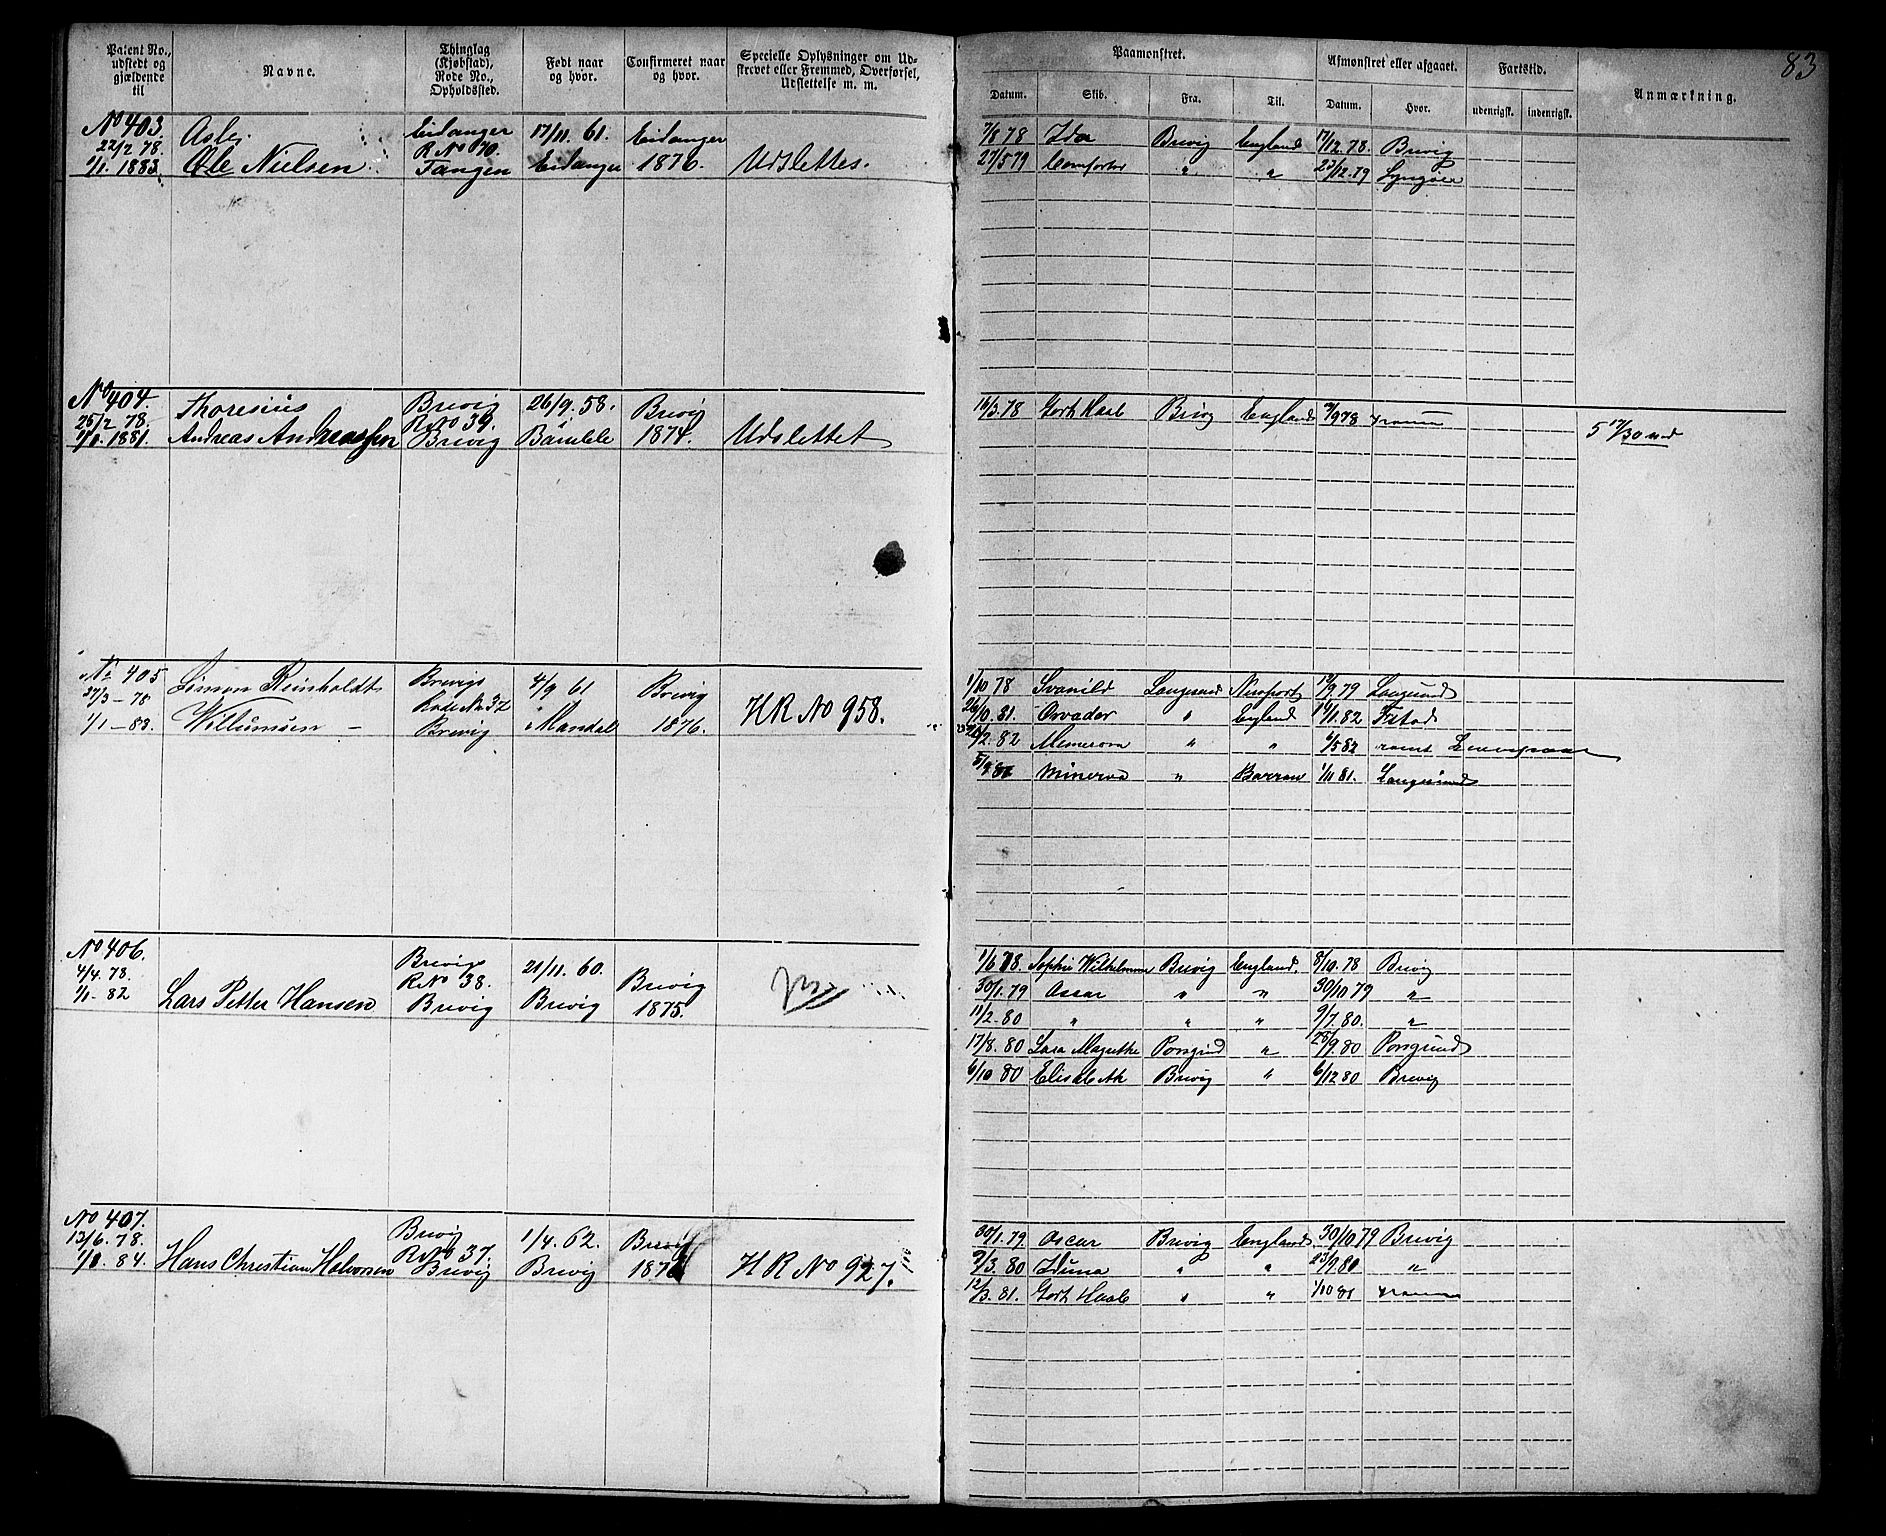 83
Patent No., udstedt og gjældende til
Navne.
Thinglag (Kjøbstad), Rode No., Opholdssted.
Født naar og hvor.
Confirmeret naar og hvor.
Specielle Oplysninger om Udskrevet eller Fremmed, Overførsel, Udslettelse m. m.
Paamønstret.
Datum. Skib. Fra. Til.
Afmønstret eller afgaaet.
Datum. Hvor.
Fartstid.
udenrigsk. indenrigsk.
Anmærkning.
No 403.
22/2 78.
1/1. 1883.
Ole Nielsen
Eidanger
R No 70.
Tangen
17/11. 61.
Eidanger
Eidanger
1876.
Udslettes.
7/8 78 Ida Brevig England 17/12. 78. Brevig
27/5 79 Comforter " " 23/12. 79 Lyngøer
No 404.
25/2 78.
1/1. 1881.
Thoresius
Andreas Andreassen
Brevig
R No 39.
Brevig
26/9. 58.
Bamble
Brevig
1874.
Udslettet
16/3. 78 Godt Haab Brevig England 9/9 78
5 17/30 md
No 405
27/3 - 78
1/1 - 83.
Simon Reinholdt
Willumsen -
Brevigs
Rode No 32
Brevig
4/9 61
Mandal
Brevig
1876.
HR No 958.
1/10 78 Svanild Langesund Newport 12/9. 79 Langesund
26/10. 81. Orvador " England 19/1. 82
2. 82 " " 6/5 82
Minerva " 1/11 81. Langesund
No 406.
4/4. 78.
1/1 - 82
Lars Petter Hansen
Brevig
R No 38.
Brevig
21/11. 60.
Brevig
Brevig
1875.
1/6 78. Sophie Wilhelmine Brevig England. 8/10. 78 Brevig
30/1. 79 Oscar " " 30/10 79 "
11/2 - 80 " " " 9/7. 80. "
17/8. 80 Porsgrund " 25/9. 80 Porsgrund
6/10 80 Elisabeth Brevig " 6/12 80 Brevig
No 407.
13/6. 78.
1/1. 84.
Hans Christian Halvorsen
Brevig
R No 37.
Brevig
1/4. 62.
Brevig
Brevig
HR No 927.
30/1. 79 Oscar Brevig England 30/10 79 Brevig
9/3. 80 Iduna " " 23/9. 80 "
12/3. 81. Godt Haab " " 1/10 81